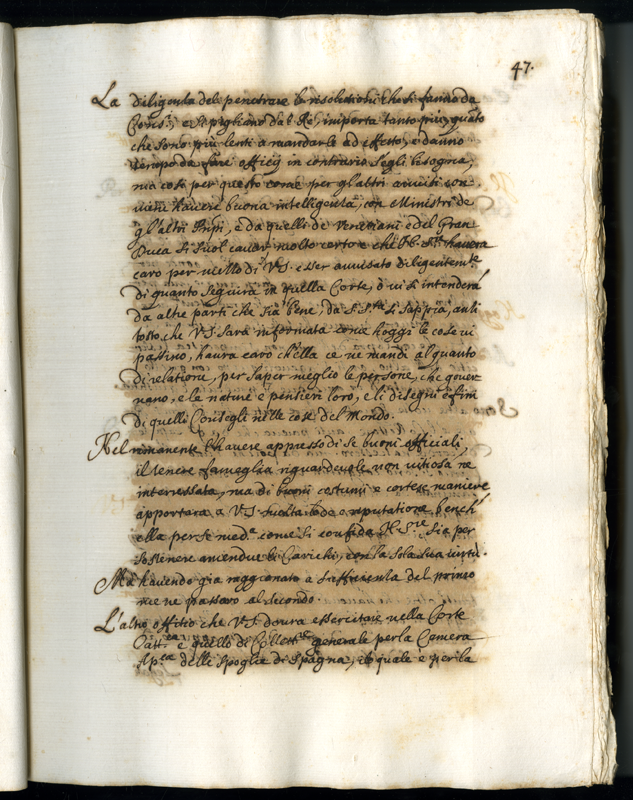 47.
La diligenza del penetrare le risolutioni che si fanno da
Cons.ri, e si pigliano dal Rè, importa tanto più, quato
che sono più lenti a mandarle ad effetto, e danno
tempo da fare officij in contrario se gli bisogna,
ma così per questo come per gl'altri avvisi con
viene havere buona intelligenza, con Ministri de
gl'altri Prnpi, e da quelli de Venetiani e del Gran
Duca si suol cavar molto certo e che N. S.re havera
caro per mezzo di V.S. esser avvisato diligentem.te
di quanto seguira in quella Corte, ò vi s'intenderà
da altre parti che sia bene, da S. S.tà si sappia, anzi
tosto che V.S. sarà informata come hoggi le cose vi
passino, haura caro ch'ella ce ne mandi alquanto
di relatione, per saper meglio le persone, che gover
nano, e le nature e pensieri loro, e li disegni e fini
di quelli Consegli nelle cose del Mondo.
Nel rimanente l'havere appresso di se buoni offitiali,
il tenere fameglia riguardevole non vitiosa nè
interessata, ma di buoni costumi e cortese maniere
apportara a V.S. molta lode e riputatione bench'
ella per se med.a come si confida N. S.re sia per
sostenere amendue li Carichi, con la sola sua virtù.
Ma havendo già raggionato a suffitienza del primo
me ne passarò al secondo.
L'altro offitio che V.S. dovra essercitare nella Corte
Catt.ca e quello di Collett.re generale per la Camera
Ap.ca delle spoglie di Spagna, il quale e per la